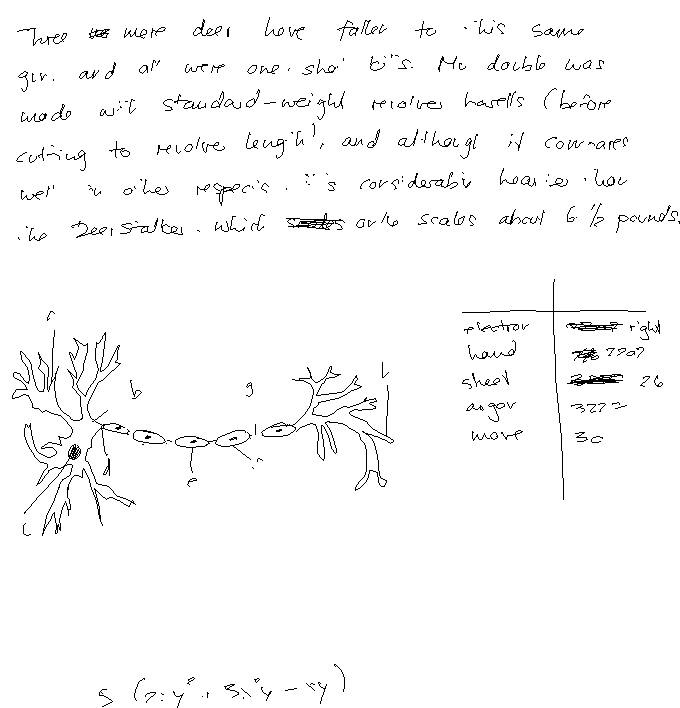 Three more deer have fallen to this same
gun, and all were one-shot kills. My double was
made with standard-weight revolver barrels (before
cutting to revolver length), and although it compares
well in other respects, it is considerably heavier than
the Deerstalker, which only scales about 6 1/2 pounds.
r
b
g
l
e
electron right
hand 7707
sheet 26
3222
move 30